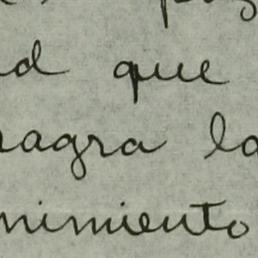 d que
agra la
nimiento